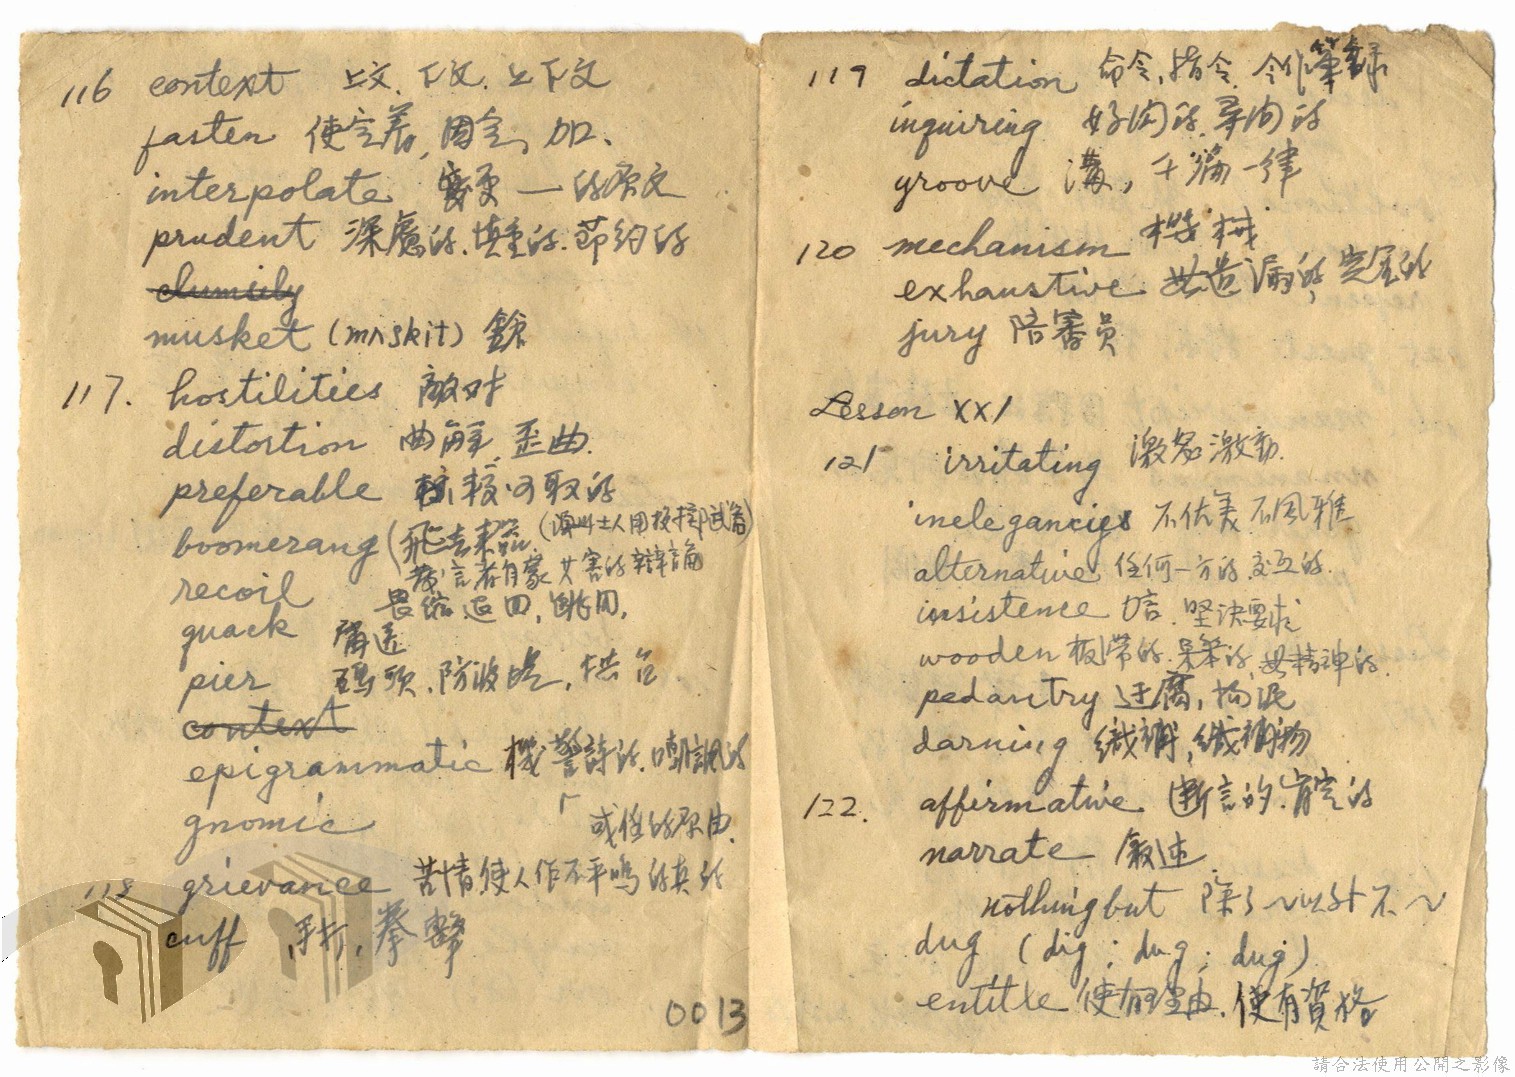 116 context 上文、下文、上下文
fasten 使定着, 固定, 加、
interpolate 變更 一的原文
prudent 深慮的、慎重的、節約的
clumsily
musket (mʌskit) 鎗
117. hostilities 敵对
distortion 曲解, 歪曲.
preferable 較可取的
boomerang (飛去来器 (澳州土人用 武器)
發言者自蒙其害的辯論
recoil 畏縮, 退回, 跳回,
quack 庸医
pier 碼頭、防波堤,
context
epigrammatic 機警詩的、嘲諷的
gnomic
「 或怪的原由.
118 grievance 苦情, 使人作不平鳴的真的
cuff 手打, 拳擊
0013
119 dictation 命令、指令、令作筆録
inquiring 好问的、尋问的
groove 溝, 千篇一律
120 mechanism 機械
exhaustive 無遺漏的, 完全的
jury 陪審员
Lesson XX1
121 irritating 激怒 激動.
inelegancies 不优美 不風雅
alternative 任何一方的、交互的.
insistence 坚决要求
wooden 板滞的、呆笨的, 無精神的.
pedantry 迂腐, 拘泥
darning 織補, 織補物
122. affirmative 断言的、肯定的
narrate 叙述
nothing but 除了~以外不~
dug (dig; dug; dug)
entitle 使有理由、使有資格
請合法使用公開之影像